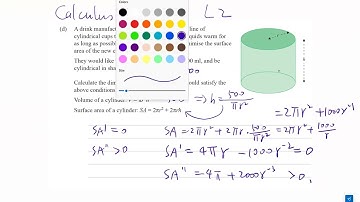 Calculus L2
(d) A drink manufact line of
cylindrical cups t quids warm for
as long as possibl imise the surface
area of the new c
They would like ml, and be
cylindrical in sha
Calculate the di uld satisfy the
above conditions
Volume of a cylinder: V = πr²h ⇒ h = 500/πr²
Surface area of a cylinder: SA = 2πr² + 2πrh
= 2πr² + 1000r⁻¹
SA' = 0 SA = 2πr² + 2πr · 500/πr² = 2πr² + 1000/r
SA'' > 0 SA' = 4πr − 1000r⁻² = 0
SA'' = 4π + 2000r⁻³ > 0,